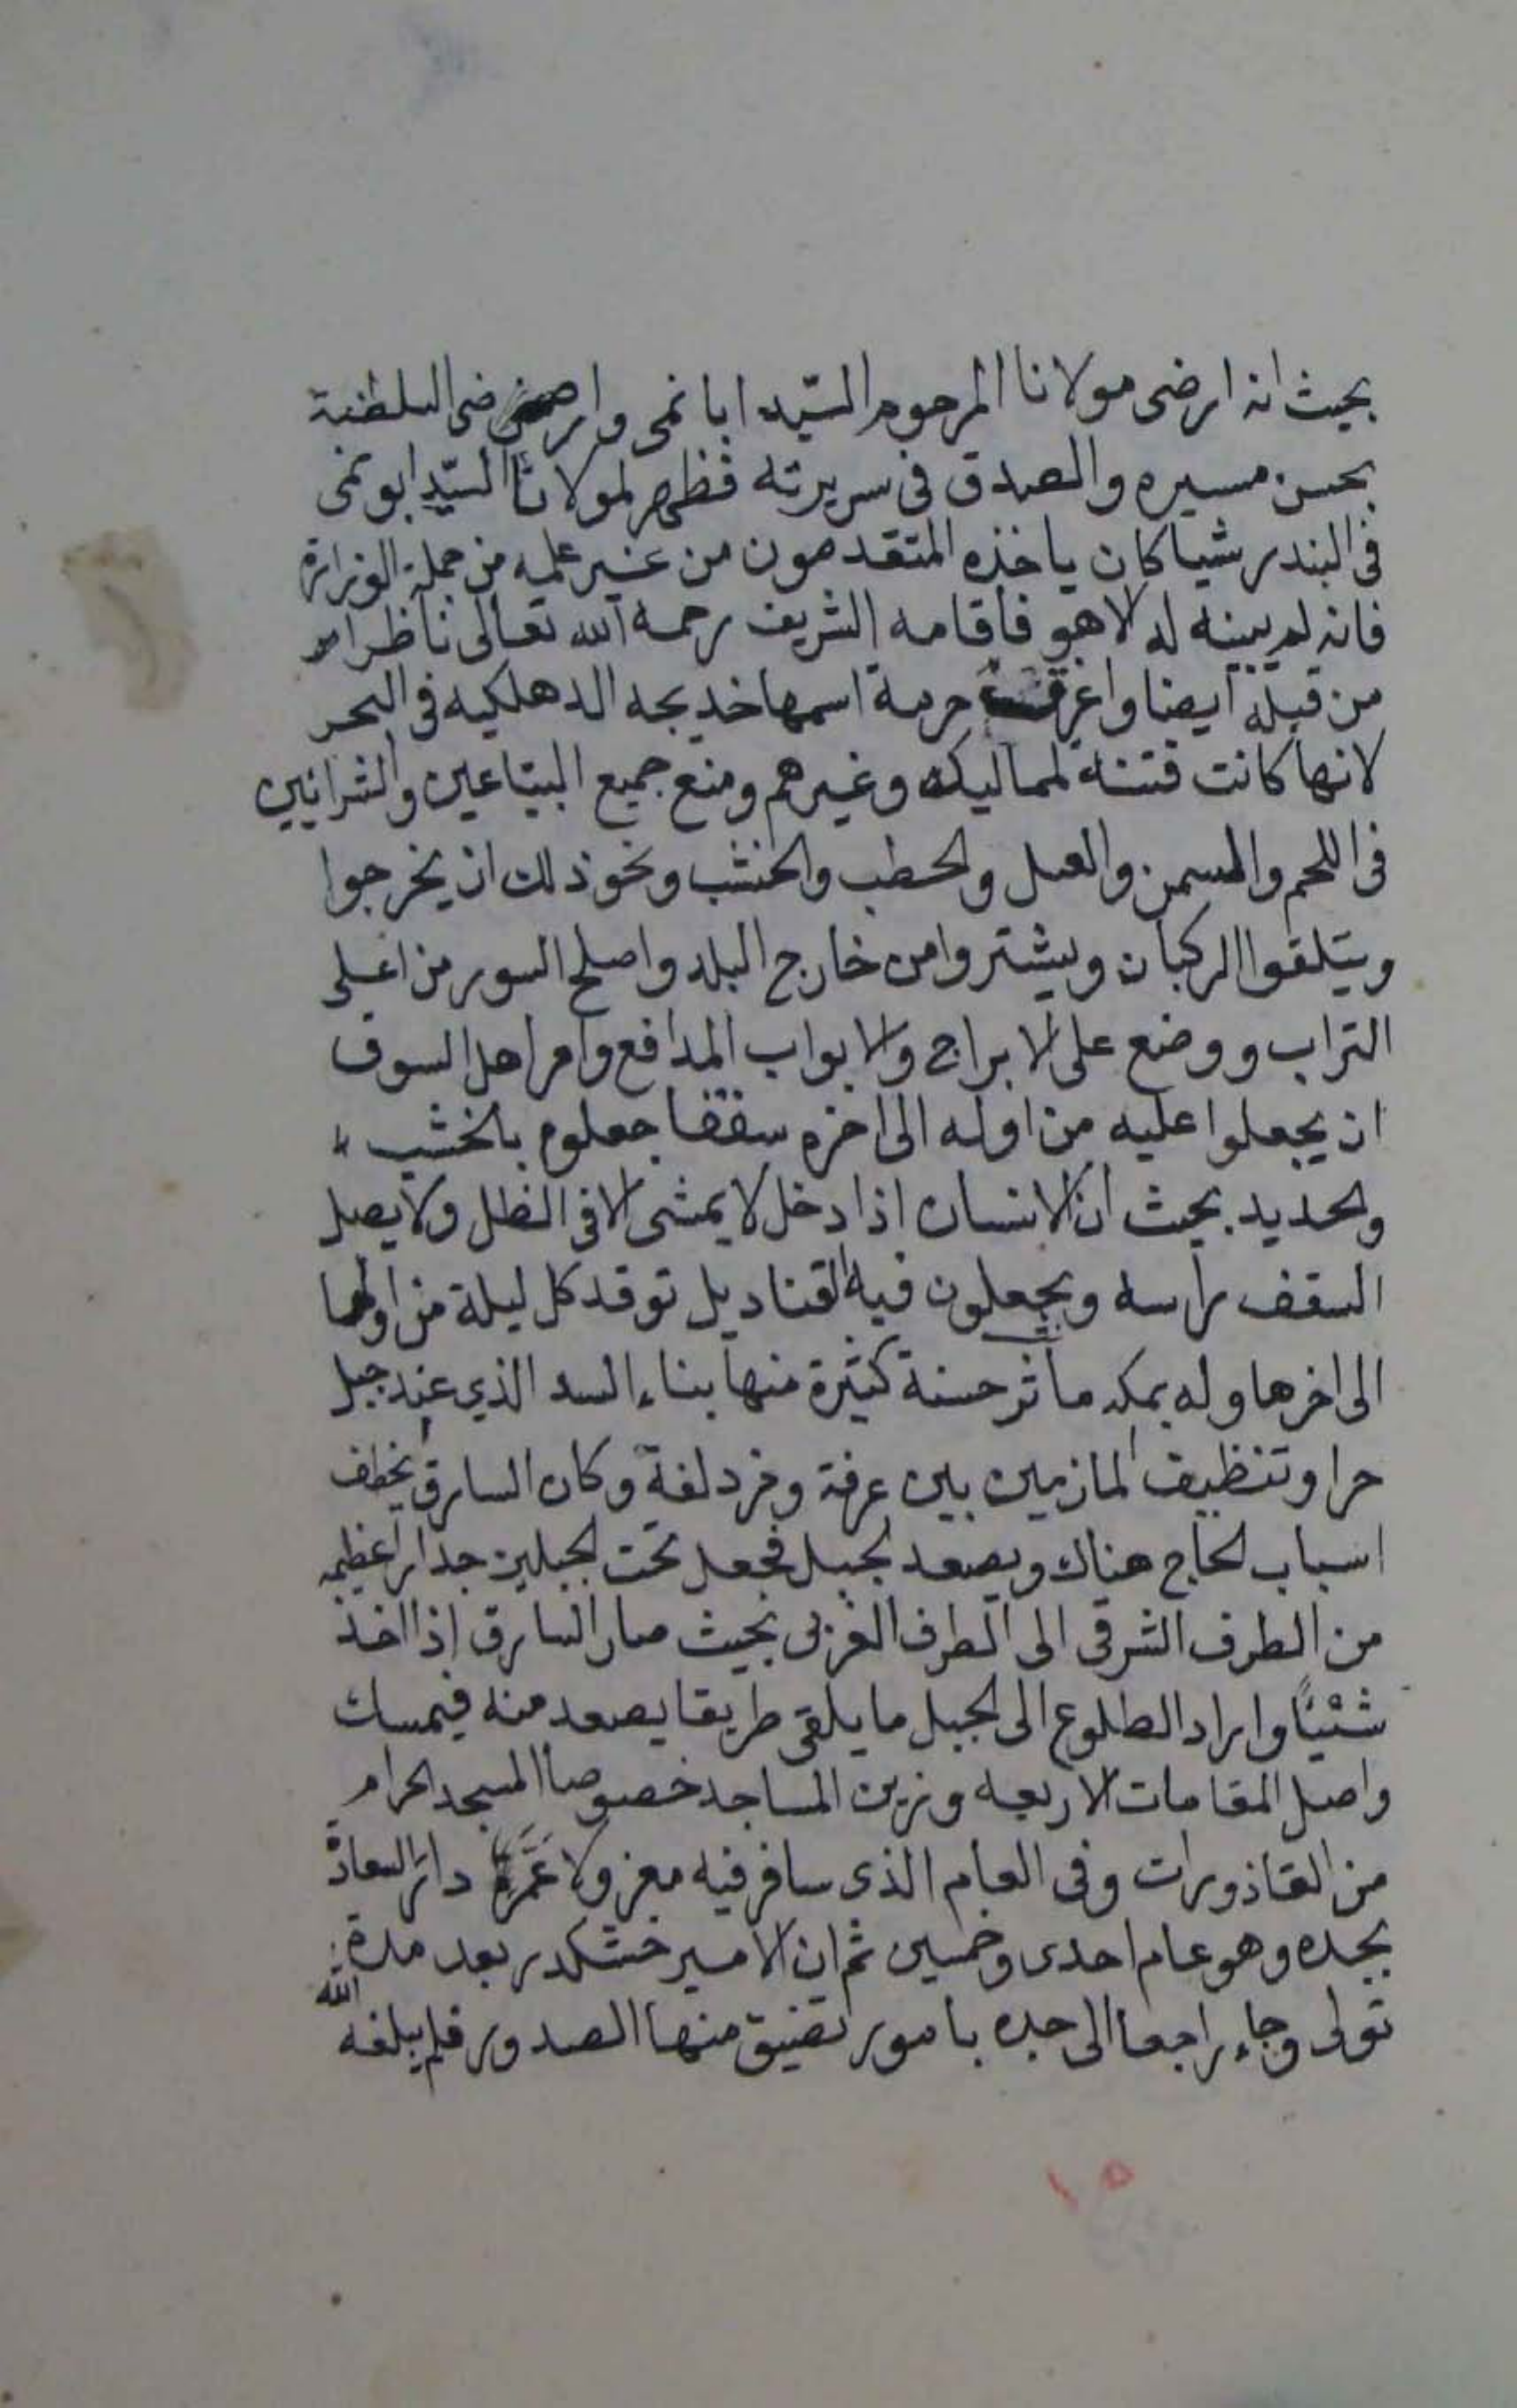 بحيث انه ارضى مولانا المرحوم السّيد ابا نمى وارضى ضى السلطنة
بحسن مسيره والصدق فى سريرته فظهر لمولانا السّيد ابو نمى
فى البندر شيا كان ياخذه المتقدمون من غير علمه من جملة الوزرا
فانه لم يبينه له الا هو فأقامه الشريف رحمه الله تعالى ناظرا
من قبله ايضا واغرقت حرمة اسمها خديجه الدهلكيه فى البحر
لانها كانت فتنة لمماليكه وغيرهم ومنع جميع البيّاعين والشرايين
فى اللحم والسمن والعسل والحطب والخشب ونحو ذلك ان يخرجوا
ويتلقوا الركبان ويشتروا من خارج البلد واصلح السور من اعلى
التراب ووضع على الابراج والابواب المدافع وامر اهل السوق
ان يجعلوا عليه من اوله الى اخره سقفا جعلوه بالخشب
والحديد بحيث ان الانسان اذا دخل لا يمشى الا فى الظل ولا يصل
السقف راسه ويجعلون فيه القناديل توقد كل ليلة من اولها
الى اخرها وله بمكه مأثر حسنة كثيرة منها بناء السد الذي عند جبل
حرا وتنظيف المازمين بين عرفة ومزدلفة وكان السارق يخطف
اسباب الحاج هناك ويصعد لجبل فجعل تحت الجبلين جدارا عظيمه
من الطرف الشرقى الى الطرف الغربى بحيث صار السارق إذا اخذ
شئيًا واراد الطلوع الى الجبل ما يلقى طريقا يصعد منه فيمسك
واصل المقامات الاربعه وزين المساجد خصوصا المسجد الحرام
من القاذورات وفى العام الذى سافر فيه معزولا عَمَّر دار السعادة
بجده وهو عام احدى وخمسين ثم ان الامير خشكلدر بعد مدة
تولى وجاء راجعا الى جده بامور تضيق منها الصدور فلم يبلغه الله
١٥